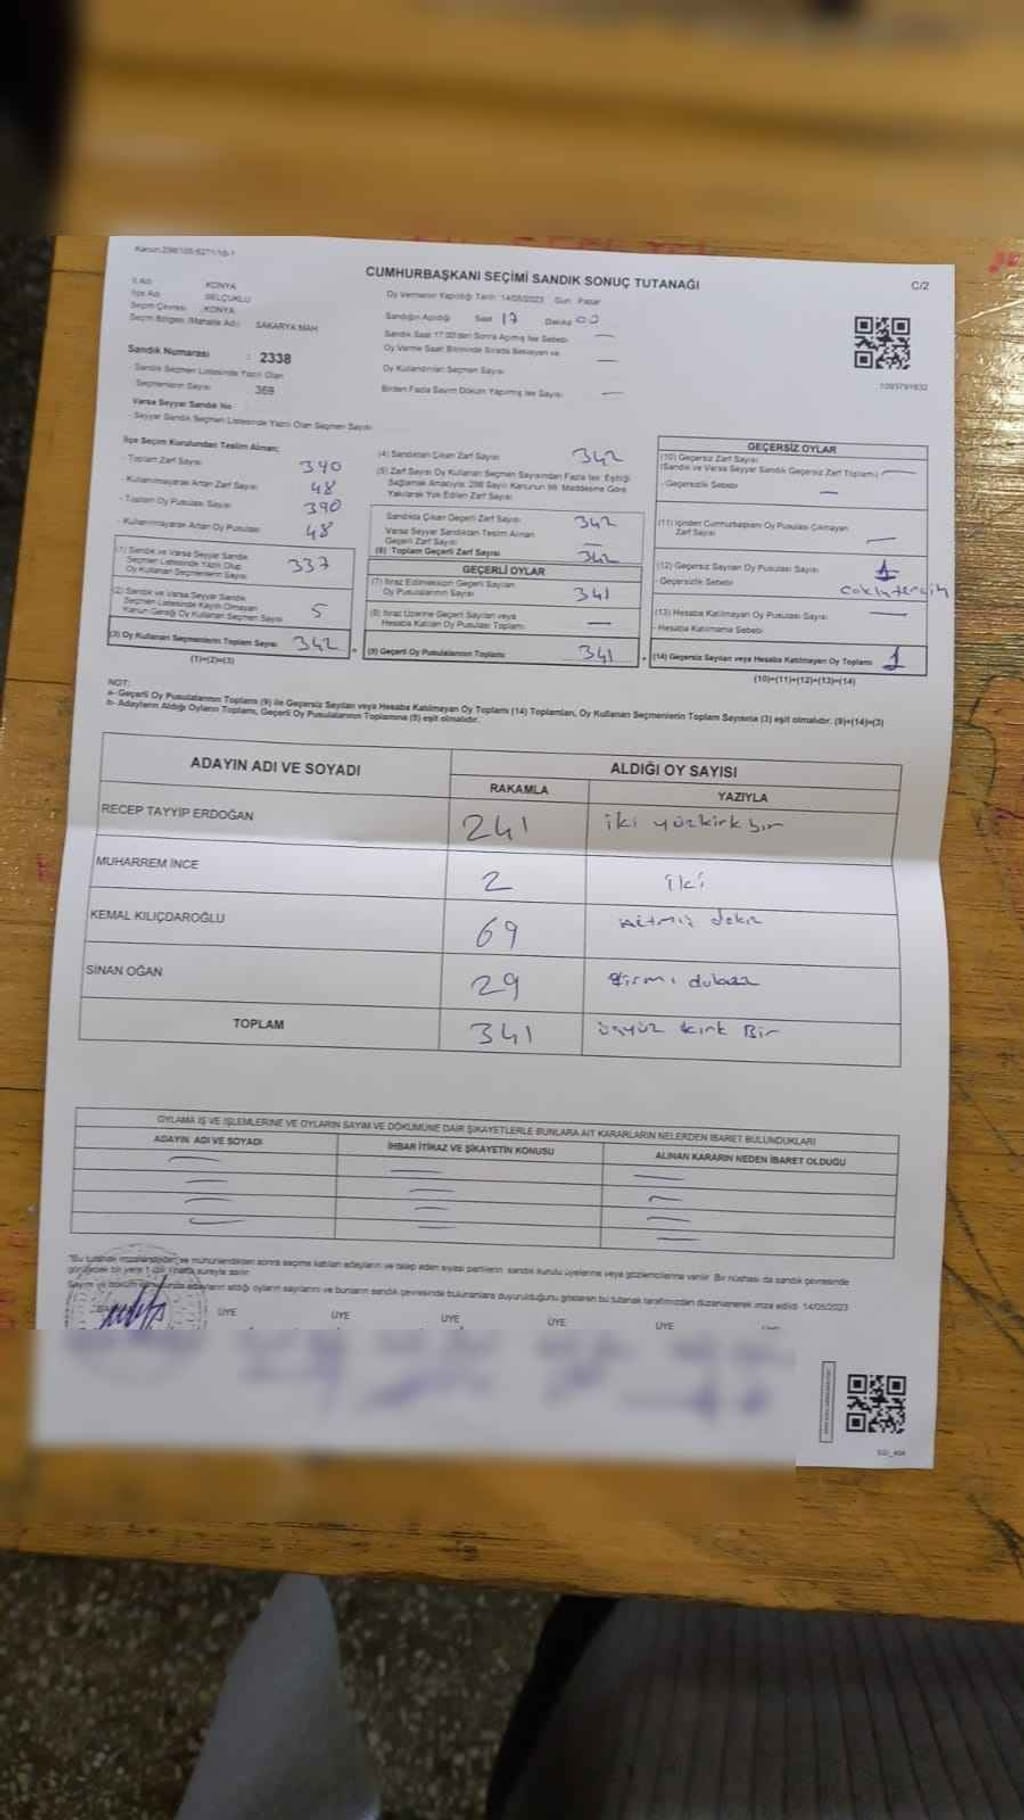 Kanun:298/105-6271/10-1
CUMHURBAŞKANI SEÇİMİ SANDIK SONUÇ TUTANAĞI
C/2
İl Adı : KONYA
İlçe Adı : SELÇUKLU
Seçim Çevresi : KONYA
Seçim Bölgesi (Mahalle Adı) : SAKARYA MAH
Oy Vermenin Yapıldığı Tarih: 14/05/2023 Gün: Pazar
Sandığın Açıldığı Saat 17 Dakika 00
Sandık Saat 17:00'den Sonra Açılmış İse Sebebi —
Oy Verme Saati Bitiminde Sırada Bekleyen ve
Oy Kullandırılan Seçmen Sayısı —
Birden Fazla Sayım Döküm Yapılmış İse Sayısı —
Sandık Numarası : 2338
- Sandık Seçmen Listesinde Yazılı Olan
Seçmenlerin Sayısı 369
Varsa Seyyar Sandık No :
- Seyyar Sandık Seçmen Listesinde Yazılı Olan Seçmen Sayısı
İlçe Seçim Kurulundan Teslim Alınan:
- Toplam Zarf Sayısı 390
- Kullanılmayarak Artan Zarf Sayısı 48
- Toplam Oy Pusulası Sayısı 390
- Kullanılmayarak Artan Oy Pusulası 48
(1) Sandık ve Varsa Seyyar Sandık
Seçmen Listesinde Yazılı Olup
Oy Kullanan Seçmenlerin Sayısı 337
(2) Sandık ve Varsa Seyyar Sandık
Seçmen Listesinde Kayıtlı Olmayan
Kanun Gereği Oy Kullanan Seçmen Sayısı 5
(3) Oy Kullanan Seçmenlerin Toplam Sayısı 342
(1)+(2)=(3)
(4) Sandıktan Çıkan Zarf Sayısı 342
(5) Zarf Sayısı Oy Kullanan Seçmen Sayısından Fazla İse, Eşitliği
Sağlamak Amacıyla, 298 Sayılı Kanunun 98. Maddesine Göre
Yakılarak Yok Edilen Zarf Sayısı
Sandıkta Çıkan Geçerli Zarf Sayısı 342
Varsa Seyyar Sandıktan Teslim Alınan
Geçerli Zarf Sayısı —
(6) Toplam Geçerli Zarf Sayısı 342
GEÇERLİ OYLAR
(7) İtiraz Edilmeksizin Geçerli Sayılan
Oy Pusulalarının Sayısı 341
(8) İtiraz Üzerine Geçerli Sayılan veya
Hesaba Katılan Oy Pusulası Toplamı —
(9) Geçerli Oy Pusulalarının Toplamı 341
GEÇERSİZ OYLAR
(10) Geçersiz Zarf Sayısı
(Sandık ve Varsa Seyyar Sandık Geçersiz Zarf Toplamı) —
- Geçersizlik Sebebi —
(11) İçinden Cumhurbaşkanı Oy Pusulası Çıkmayan
Zarf Sayısı —
(12) Geçersiz Sayılan Oy Pusulası Sayısı 1
- Geçersizlik Sebebi
(13) Hesaba Katılmayan Oy Pusulası Sayısı —
- Hesaba Katılmama Sebebi
(14) Geçersiz Sayılan veya Hesaba Katılmayan Oy Toplamı 1
(10)+(11)+(12)+(13)=(14)
NOT:
a- Geçerli Oy Pusulalarının Toplamı (9) ile Geçersiz Sayılan veya Hesaba Katılmayan Oy Toplamı (14) Toplamları, Oy Kullanan Seçmenlerin Toplam Sayısına (3) eşit olmalıdır. (9)+(14)=(3)
b- Adayların Aldığı Oyların Toplamı, Geçerli Oy Pusulalarının Toplamına (9) eşit olmalıdır.
ADAYIN ADI VE SOYADI ALDIĞI OY SAYISI
RAKAMLA YAZIYLA
RECEP TAYYİP ERDOĞAN 241 iki yüzkirkbir
MUHARREM İNCE 2 iki
KEMAL KILIÇDAROĞLU 69
SİNAN OĞAN 29
TOPLAM 341 üçyüz kırk Bir
OYLAMA İŞ VE İŞLEMLERİNE VE OYLARIN SAYIM VE DÖKÜMÜNE DAİR ŞİKAYETLERLE BUNLARA AİT KARARLARIN NELERDEN İBARET BULUNDUKLARI
ADAYIN ADI VE SOYADI İHBAR İTİRAZ VE ŞİKAYETİN KONUSU ALINAN KARARIN NEDEN İBARET OLDUĞU
ÜYE ÜYE ÜYE ÜYE ÜYE